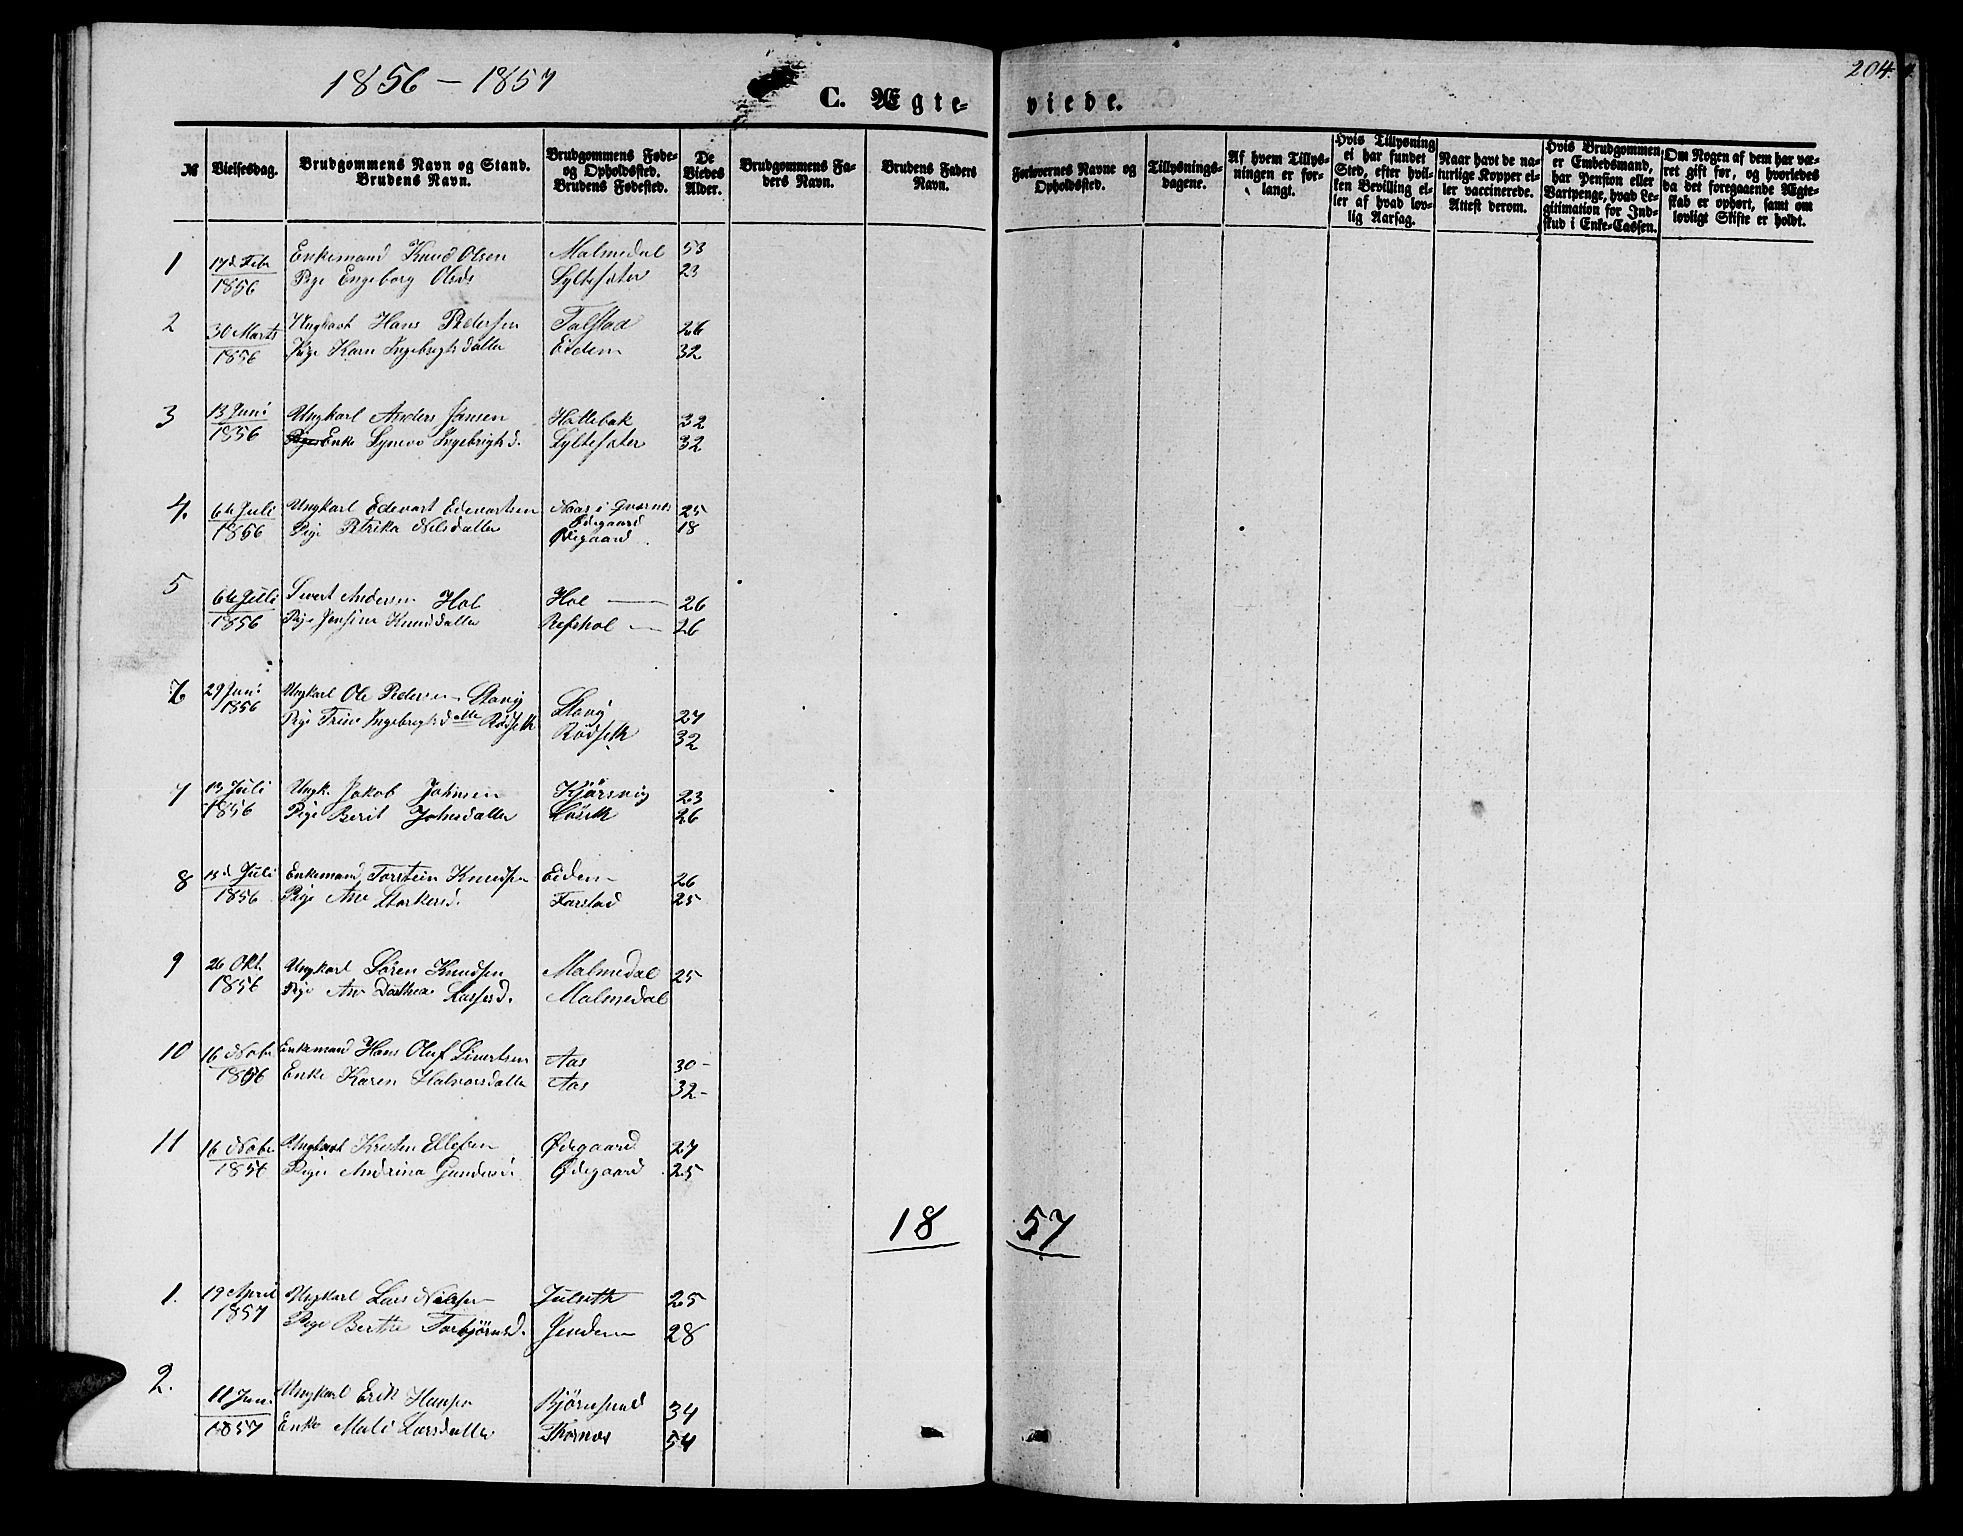 1856 - 1857
C. Ægte-
viede.
204.
№
Vielsesdag.
Brudgommens Navn og Stand.
Brudens Navn.
Brudgommens Føde-
og Opholdssted.
Brudens Fødested.
De
Viedes
Alder.
Brudgommens Fa-
ders Navn.
Brudens Faders
Navn.
Forlovernes Navne og
Opholdssted.
Tillysnings-
dagene.
Af hvem Tillys-
ningen er for-
langt.
Hvis Tillysning
ei har fundet
Sted, efter hvil-
ken Bevilling el-
ler af hvad lov-
lig Aarsag.
Naar havt de na-
turlige Kopper el-
ler vaccinerede.
Attest derom.
Hvis Brudgommen
er Embedsmand,
har Pension eller
Vartpenge, hvad Le-
gitimation for Ind-
skud i Enke-Cassen.
Om Nogen af dem har væ-
ret gift før, og hvorledes
da det foregaaende Ægte-
skab er ophørt, samt om
lovligt Skifte er holdt.
1 17d Febr Enkemand Knud Olsen Malmedal 53
1856 Pige Engeborg Olsds Syltesæter 23
2 30 Marts Ungkarl Hans Pedersen Talstad 26
1856 Pige Karn Ingebrigtsdatter Eidem 32
3 13 Juni Ungkarl Anders Jansen Hattebak 32
1856 Pige Enke Synevo Ingebrigtsd. Syltesæter 32
4. 6te Juli Ungkarl Edevart Edevartsen Naas i Qværnes 25
Ødegaard
1856 Pige Petrika Nilsdatter Ødegaard 18
5 6te Juli Sivert Andersen Hol Hol 26
1856 Pige Jensine Knudsdatter Refshol 26
6 29 Juni Ungkarl Ole Pedersen Stavig Stavig 27
1856 Pige Trine Ingebrigtsdatter Rødseth Rødseth 32
7 13 Juli Ungk. Jakob Johnsen Kjørsvig 23
1856 Pige Berit Johnsdatter 26
8 13d Juli Enkemand Torstein Knudsen Eidem 26
1856 Pige Ane Starkersd. Farstad 25
9 26 Okt. Ungkarl Sören Knudsen Malmedal 25
1856 Pige Ane Dorthea Lassesd. Malmedal
10 16 Nobr Enkemand Hans Oluf Sivertsen Aas 30-
1856 Enke Karen Halvorsdatter Aas 32-
11 16 Nobr Ungkarl Kristen Ellefsen Ødegaard 27
1856 Pige Andrina Gundersd. Ødegaard 25
18 57
1. 19 April Ungkarl Lars Nielsen Julseth 25
1857 Pige Berthe Torbjørnsd. Jendem 28
2. 11 Juni Ungkarl Erik Hansen Bjørnsund 34
1857 Enke Mali Larsdatter Thornes 54